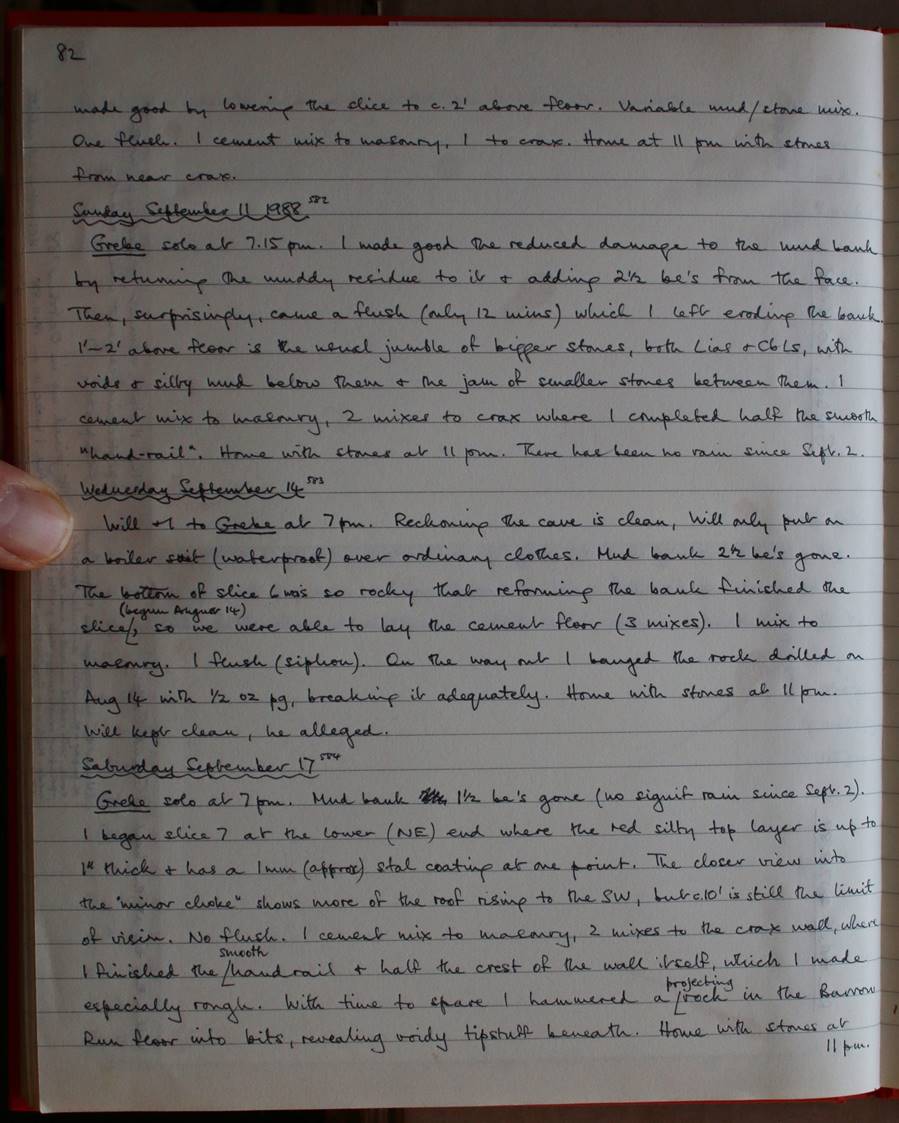 82
made good by lowering the slice to c. 2' above floor. Variable mud/stone mix.
One flush. 1 cement mix to masonry, 1 to crax. Home at 11 pm with stones
from near crax.
Sunday September 11 1988 582
Grebe solo at 7.15 pm. I made good the reduced damage to the mud bank
by returning the muddy residue to it & adding 2½ be's from the face.
Then, surprisingly, came a flush (only 12 mins) which I left eroding the bank.
1'-2' above floor is the usual jumble of bigger stones, both Lias & CbLs, with
voids & silty mud below them & the jam of smaller stones between them. 1
cement mix to masonry, 2 mixes to crax where I completed half the smooth
"hand-rail". Home with stones at 11 pm. There has been no rain since Sept. 2.
Wednesday September 14 583
Will & I to Grebe at 7 pm. Reckoning the cave is clean, Will only put on
a boiler suit (waterproof) over ordinary clothes. Mud bank 2½ be's gone.
The bottom of slice 6 was so rocky that reforming the bank finished the
(begun August 14)
slice, so we were able to lay the cement floor (3 mixes). 1 mix to
masonry. 1 flush (siphon). On the way out I banged the rock drilled on
Aug 14 with ½ oz pg, breaking it adequately. Home with stones at 11 pm.
Will kept clean, he alleged.
Saturday September 17 584
Grebe solo at 7 pm. Mud bank 1½ be's gone (no signif rain since Sept. 2).
I began slice 7 at the lower (NE) end where the red silty top layer is up to
1" thick & has a 1mm (approx) stal coating at one point. The closer view into
the "minor choke" shows more of the roof rising to the SW, but c.10' is still the limit
of vision. No flush. 1 cement mix to masonry, 2 mixes to the crax wall, where
I finished the smooth handrail & half the crest of the wall itself, which I made
especially rough. With time to spare I hammered a projecting rock in the Barrow
Run floor into bits, revealing voidy tipstuff beneath. Home with stones at
11 pm.